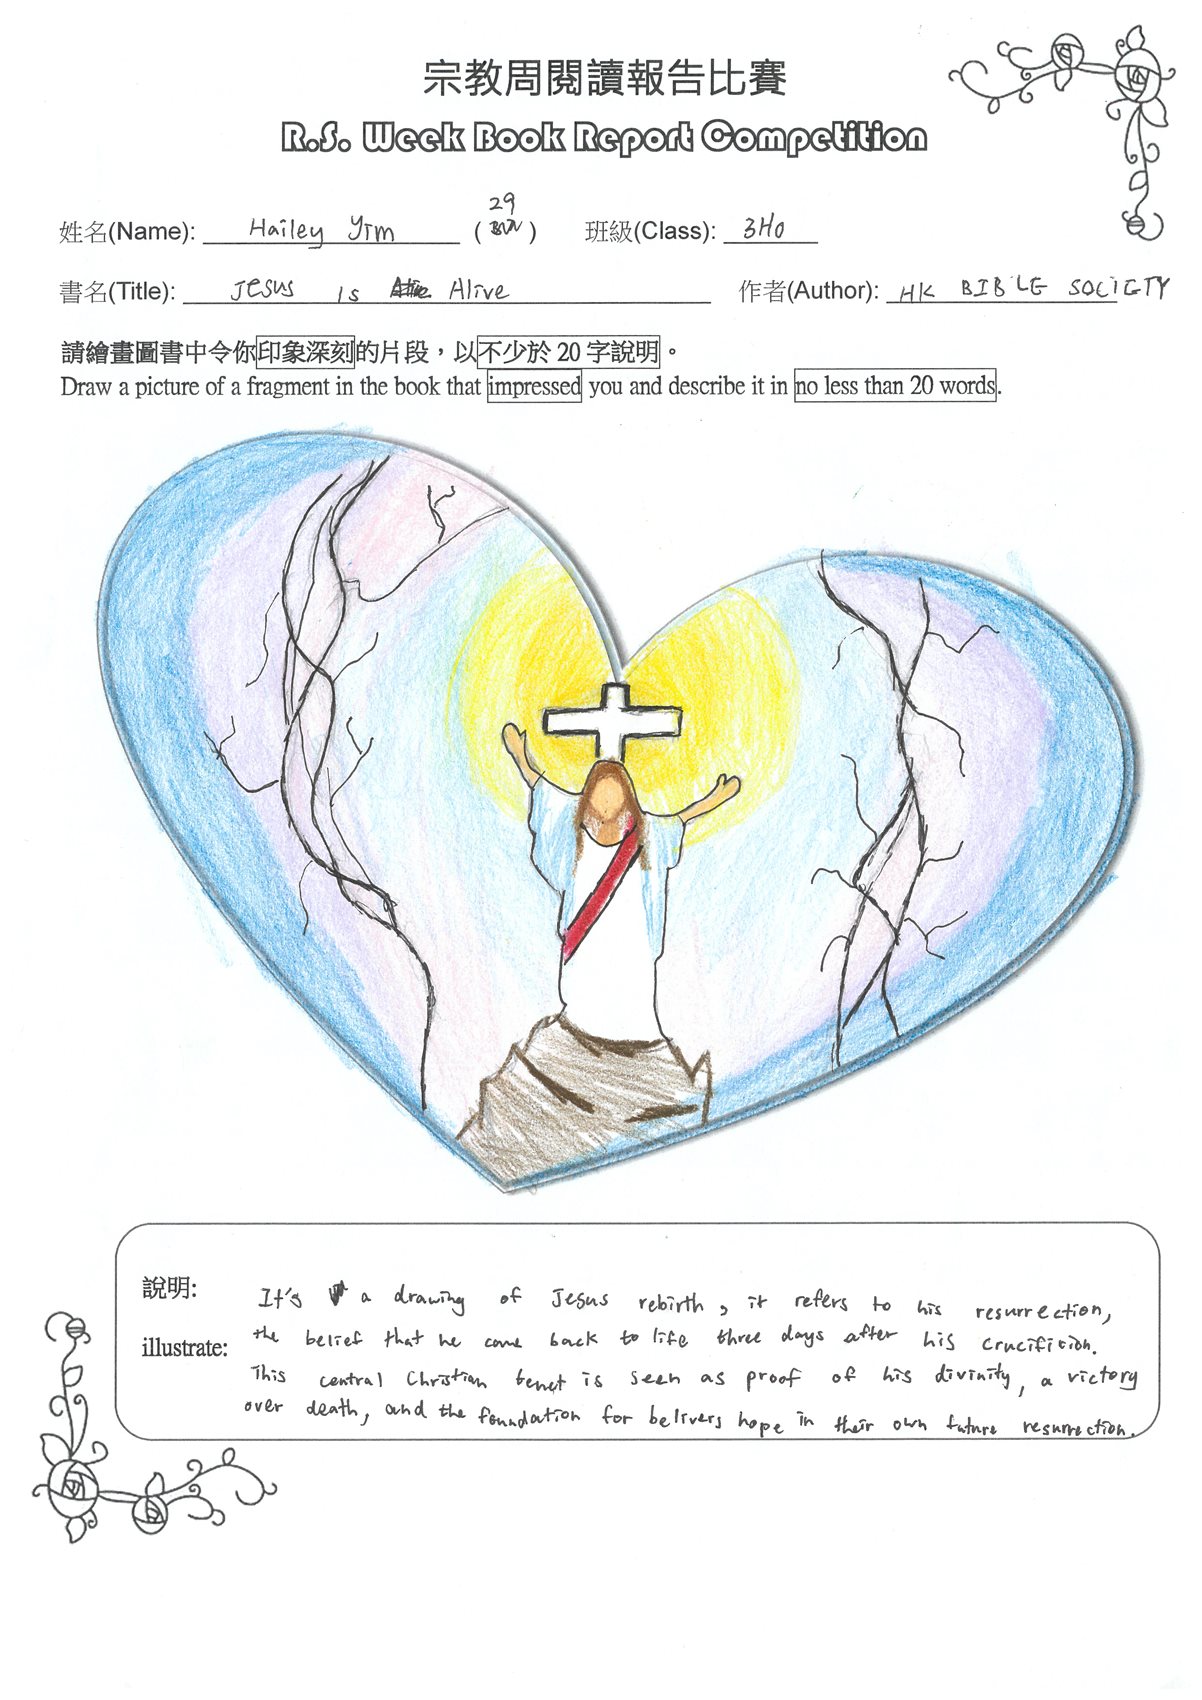 宗教周閱讀報告比賽
R.S. Week Book Report Competition
姓名(Name): Hailey Yim (29) 班級(Class): 3Ho
書名(Title): Jesus is Alive 作者(Author): HK BIBLE SOCIETY
請繪畫圖書中令你印象深刻的片段，以不少於 20 字說明。
Draw a picture of a fragment in the book that impressed you and describe it in no less than 20 words.
說明:
illustrate:
It's a drawing of Jesus rebirth, it refers to his resurrection,
the belief that he came back to life three days after his crucifition.
This central Christian tenet is seen as proof of his divinity, a victory
over death, and the foundation for belivers hope in their own future resurrection.